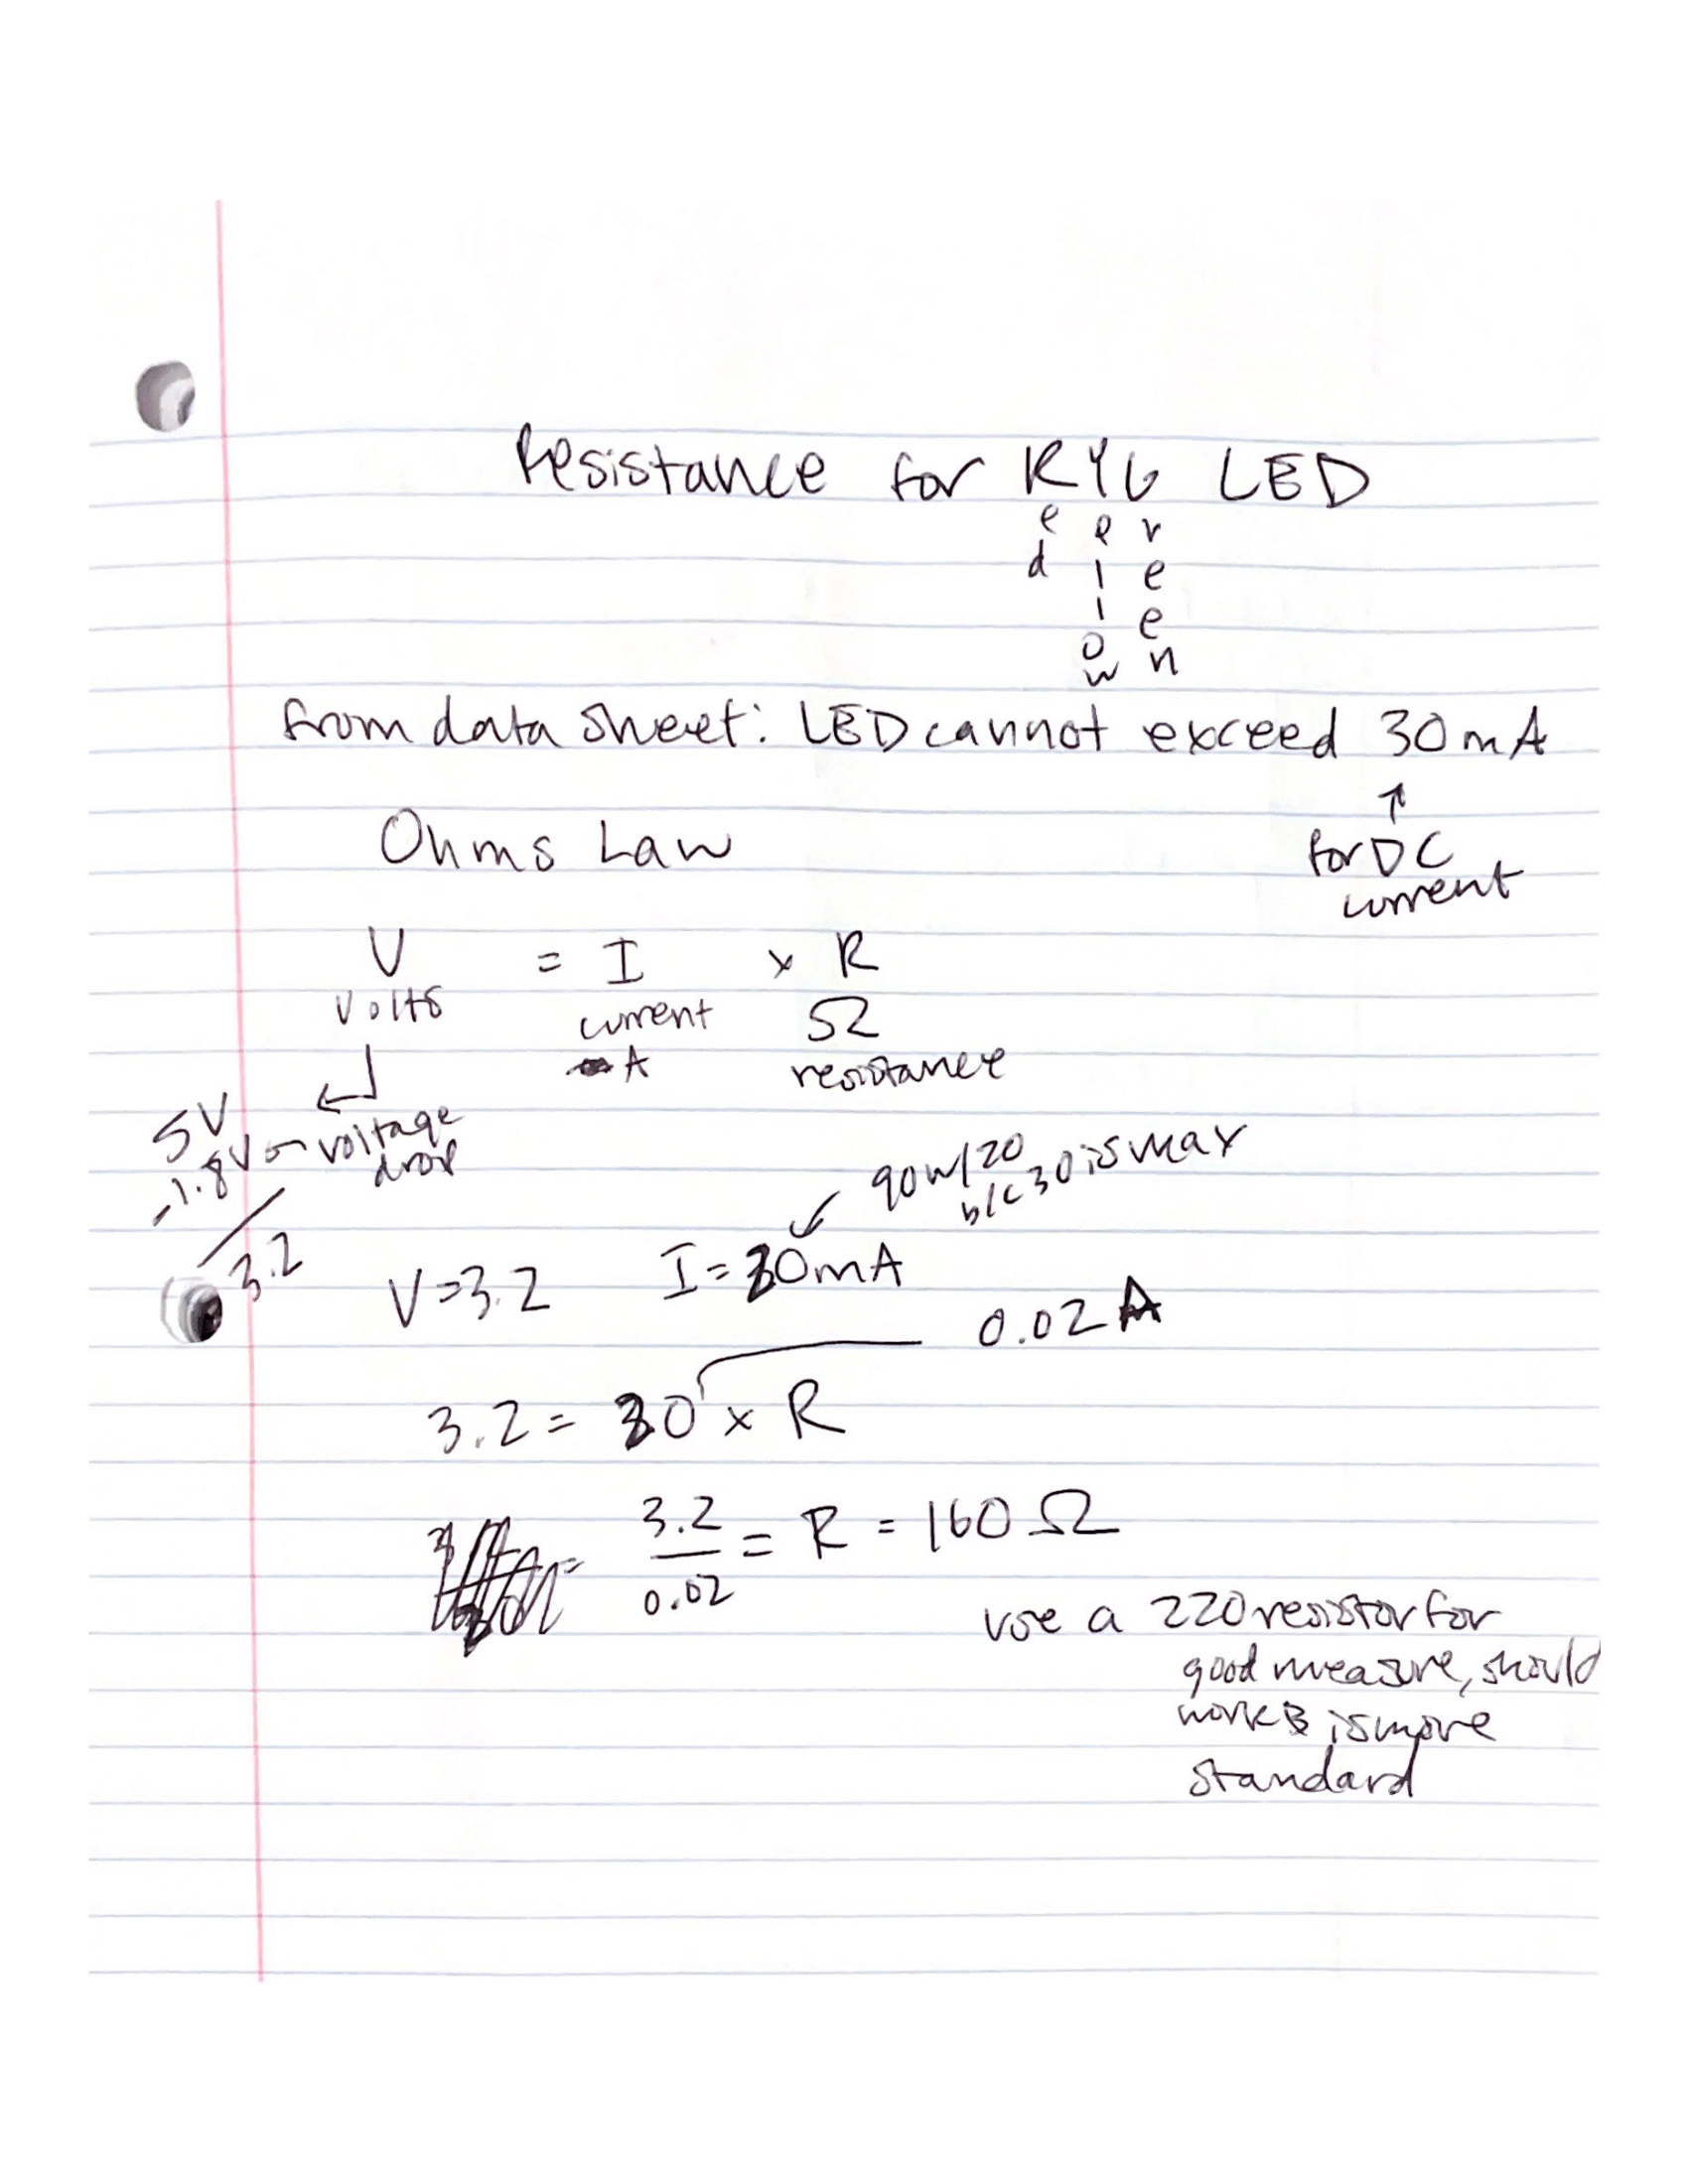 Resistance for RYG LED
e e r
d l e
l e
o n
w
from data sheet: LED cannot exceed 30mA
↑
for DC
current
Ohms Law
V = I × R
volts current Ω
A resistance
5V
-1.8V ← voltage
drop
3.2
go w/ 20
b/c 30 is max
V=3.2 I=20mA
0.02A
3.2 = 20 × R
3.2
0.02
= R = 160 Ω
use a 220 resistor for
good measure, should
work & is more
standard